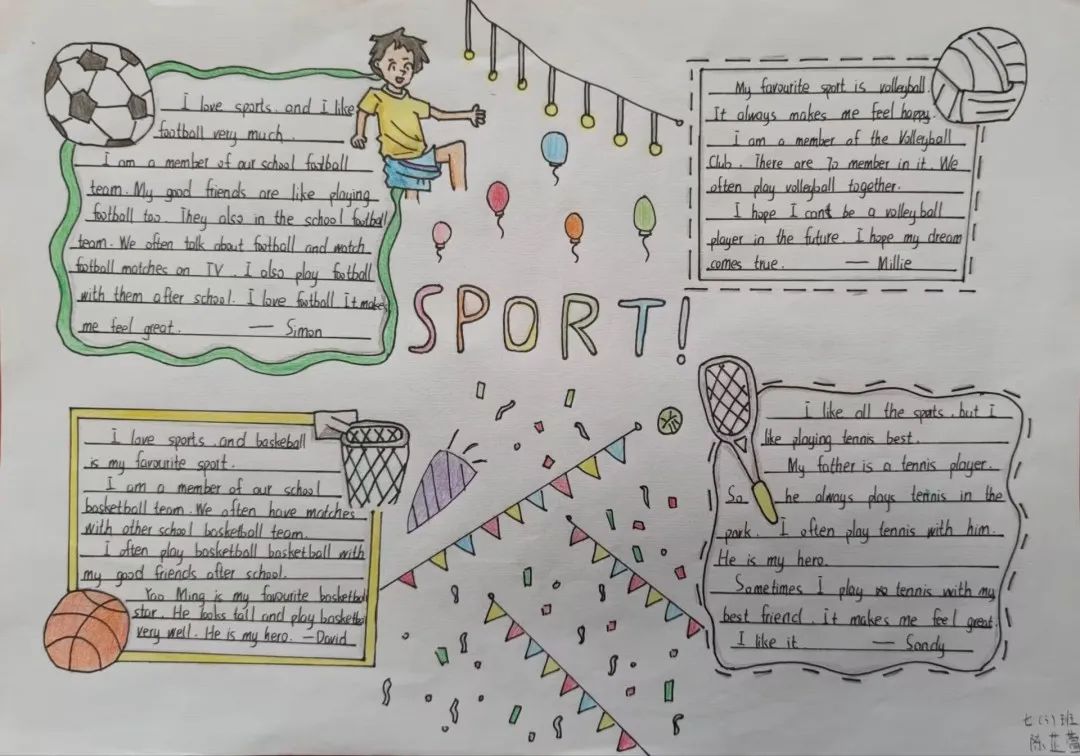 I love sports. and I like
football very much.
I am a member of our school football
team. My good friends are like playing
football too. They also in the school football
team. We often talk about football and watch
football matches on TV. I also play football
with them after school. I love football It makes
me feel great. — Simon
My favourite sport is volleyball.
It always makes me feel happy.
I am a member of the Volleyball
Club. There are 70 member in it. We
often play volleyball together.
I hope I cant be a volleyball
player in the future. I hope my dream
comes true. — Millie
SPORT!
I love sports. and baskeball
is my favourite sport.
I am a member of our school
basketball team. We often have matches
with other school basketball team.
I often play basketball basketball with
my good friends after school.
Yao Ming is my favourite basketball
star. He looks tall and play basketball
very well. He is my hero. —David
I like all the sports. but I
like playing tennis best.
My father is a tennis player.
So he always plays tennis in the
park. I often play tennis with him.
He is my hero.
Sometimes I play tennis with my
best friend. it makes me feel great.
I like it — Sandy
七(3)班
陈芷萱